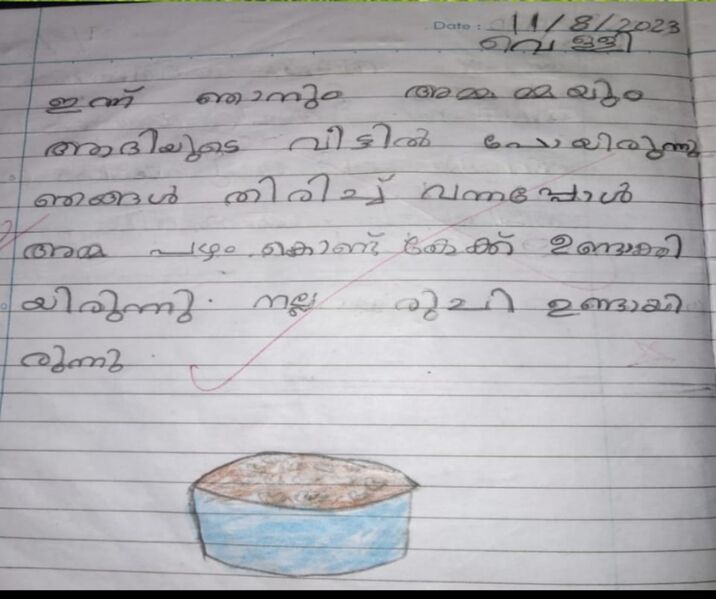 Date: 11/8/2023
വെള്ളി
ഇന്ന് ഞാനും അമ്മമ്മയും
ആദിയുടെ വീട്ടിൽ പോയിരുന്നു
ഞങ്ങൾ തിരിച്ച് വന്നപ്പോൾ
അമ്മ പഴം കൊണ്ട് കേക്ക് ഉണ്ടാക്കി
യിരുന്നു. നല്ല രുചി ഉണ്ടായി
രുന്നു.